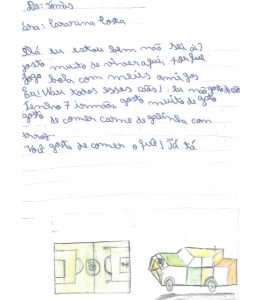 De: Jonas
ara: Catarina Costa
Olá eu estou bem não sei di?
gosto muito de porque
jogo bola com meus amigos
Eu! Uau todos esses cães! eu não gosto de cão
Tenho 7 irmãos gosto muito de gato
gosto de comer carne de galinha com
arroz.
Você gosta de comer o quê! Tá tá